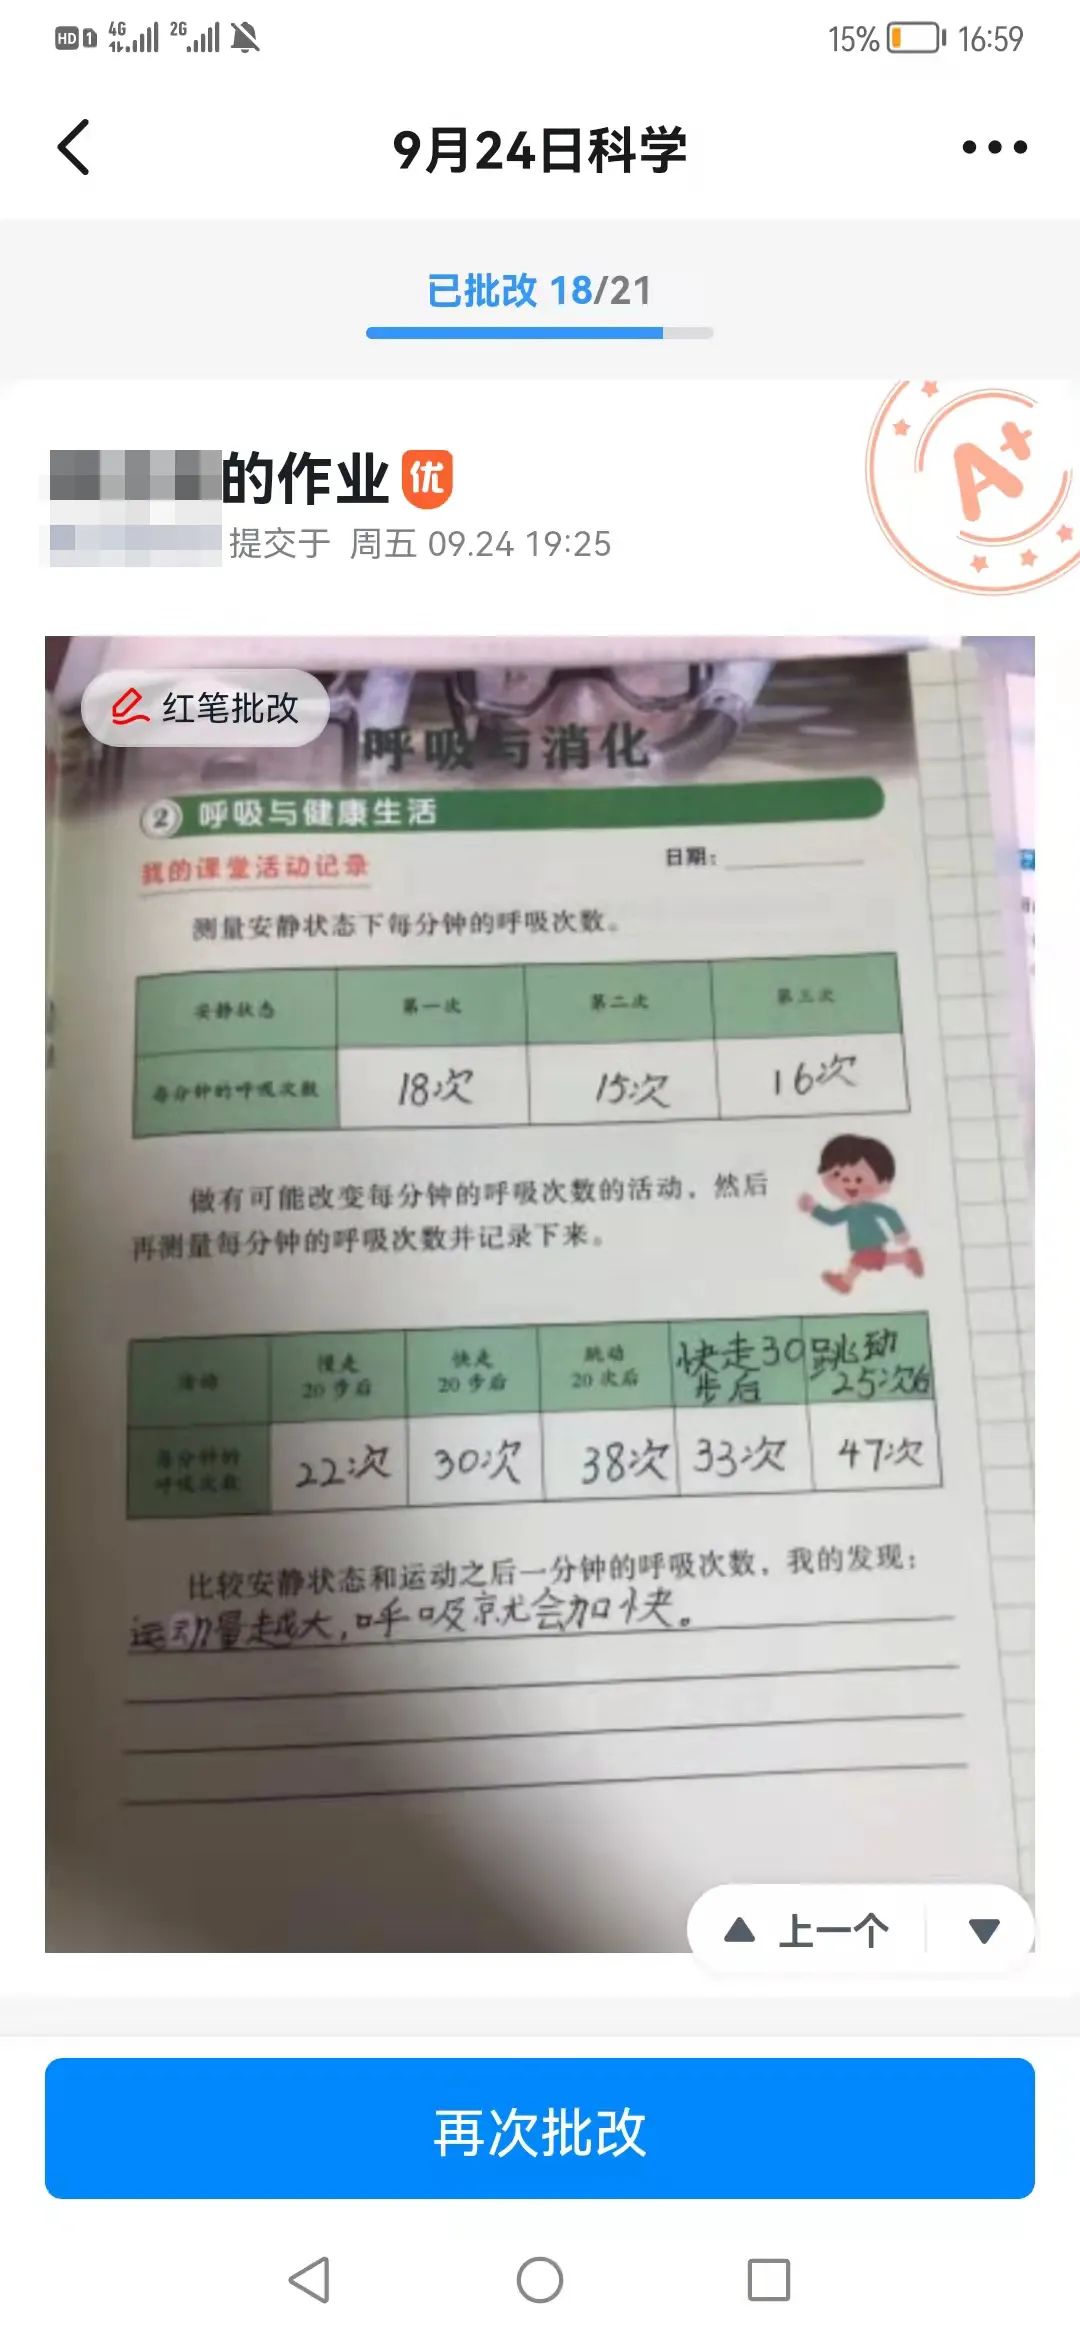 HD 1 4G 2G 15% 16:59
9月24日科学
已批改 18/21
的作业 优
提交于 周五 09.24 19:25
A+
红笔批改
呼吸与消化
2 呼吸与健康生活
我的课堂活动记录 日期：
测量安静状态下每分钟的呼吸次数。
安静状态 第一次 第二次 第三次
每分钟的呼吸次数 18次 15次 16次
做有可能改变每分钟的呼吸次数的活动，然后
再测量每分钟的呼吸次数并记录下来。
活动 慢走 20步后 快走 20步后 跳动 20次后 快走30步后 跳动25次
每分钟的呼吸次数 22次 30次 38次 33次 47次
比较安静状态和运动之后一分钟的呼吸次数，我的发现：
运动量越大，呼吸就会加快。
上一个
再次批改